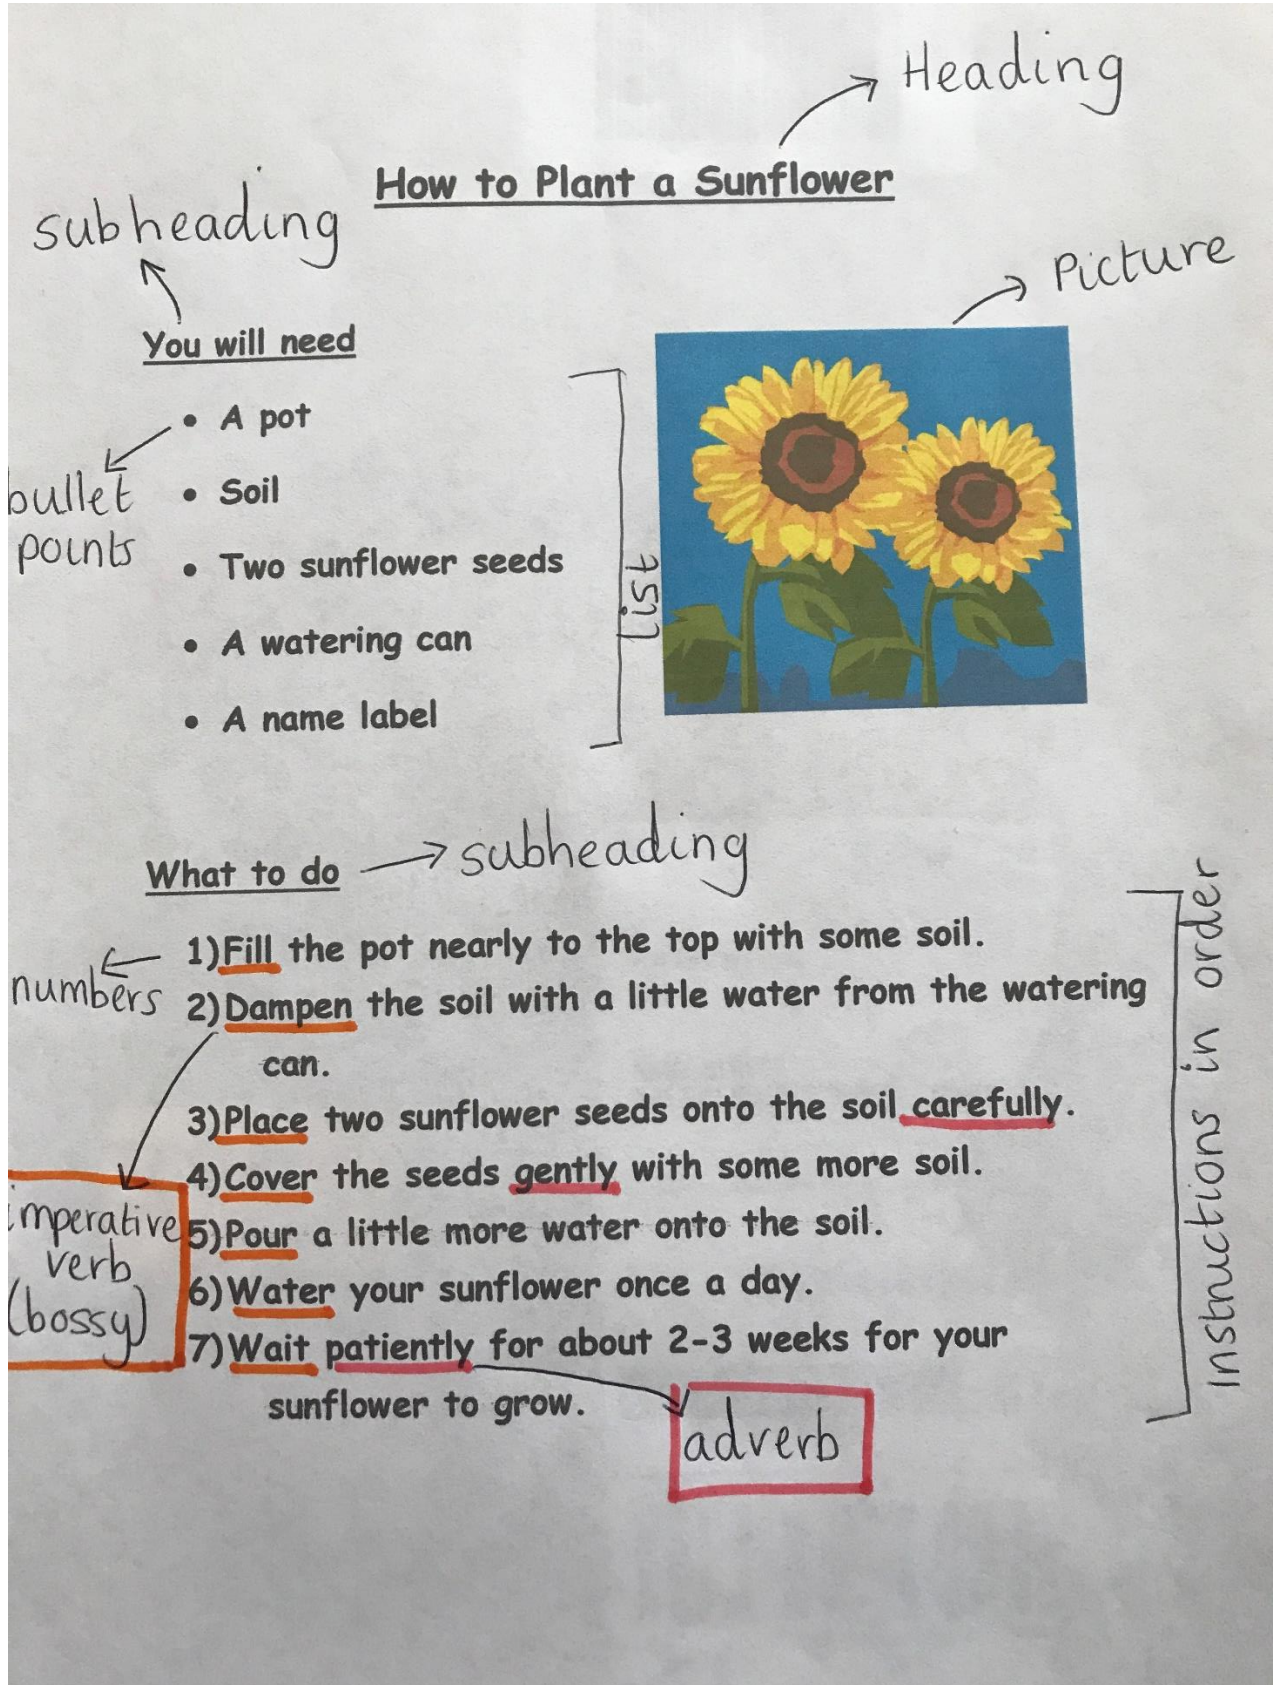 Heading
How to Plant a Sunflower
subheading
Picture
You will need
• A pot
• Soil
• Two sunflower seeds
• A watering can
• A name label
bullet
points
list
What to do
subheading
numbers
1)Fill the pot nearly to the top with some soil.
2)Dampen the soil with a little water from the watering
can.
3)Place two sunflower seeds onto the soil carefully.
4)Cover the seeds gently with some more soil.
5)Pour a little more water onto the soil.
6)Water your sunflower once a day.
7)Wait patiently for about 2-3 weeks for your
sunflower to grow.
imperative
verb
(bossy)
adverb
Instructions in order